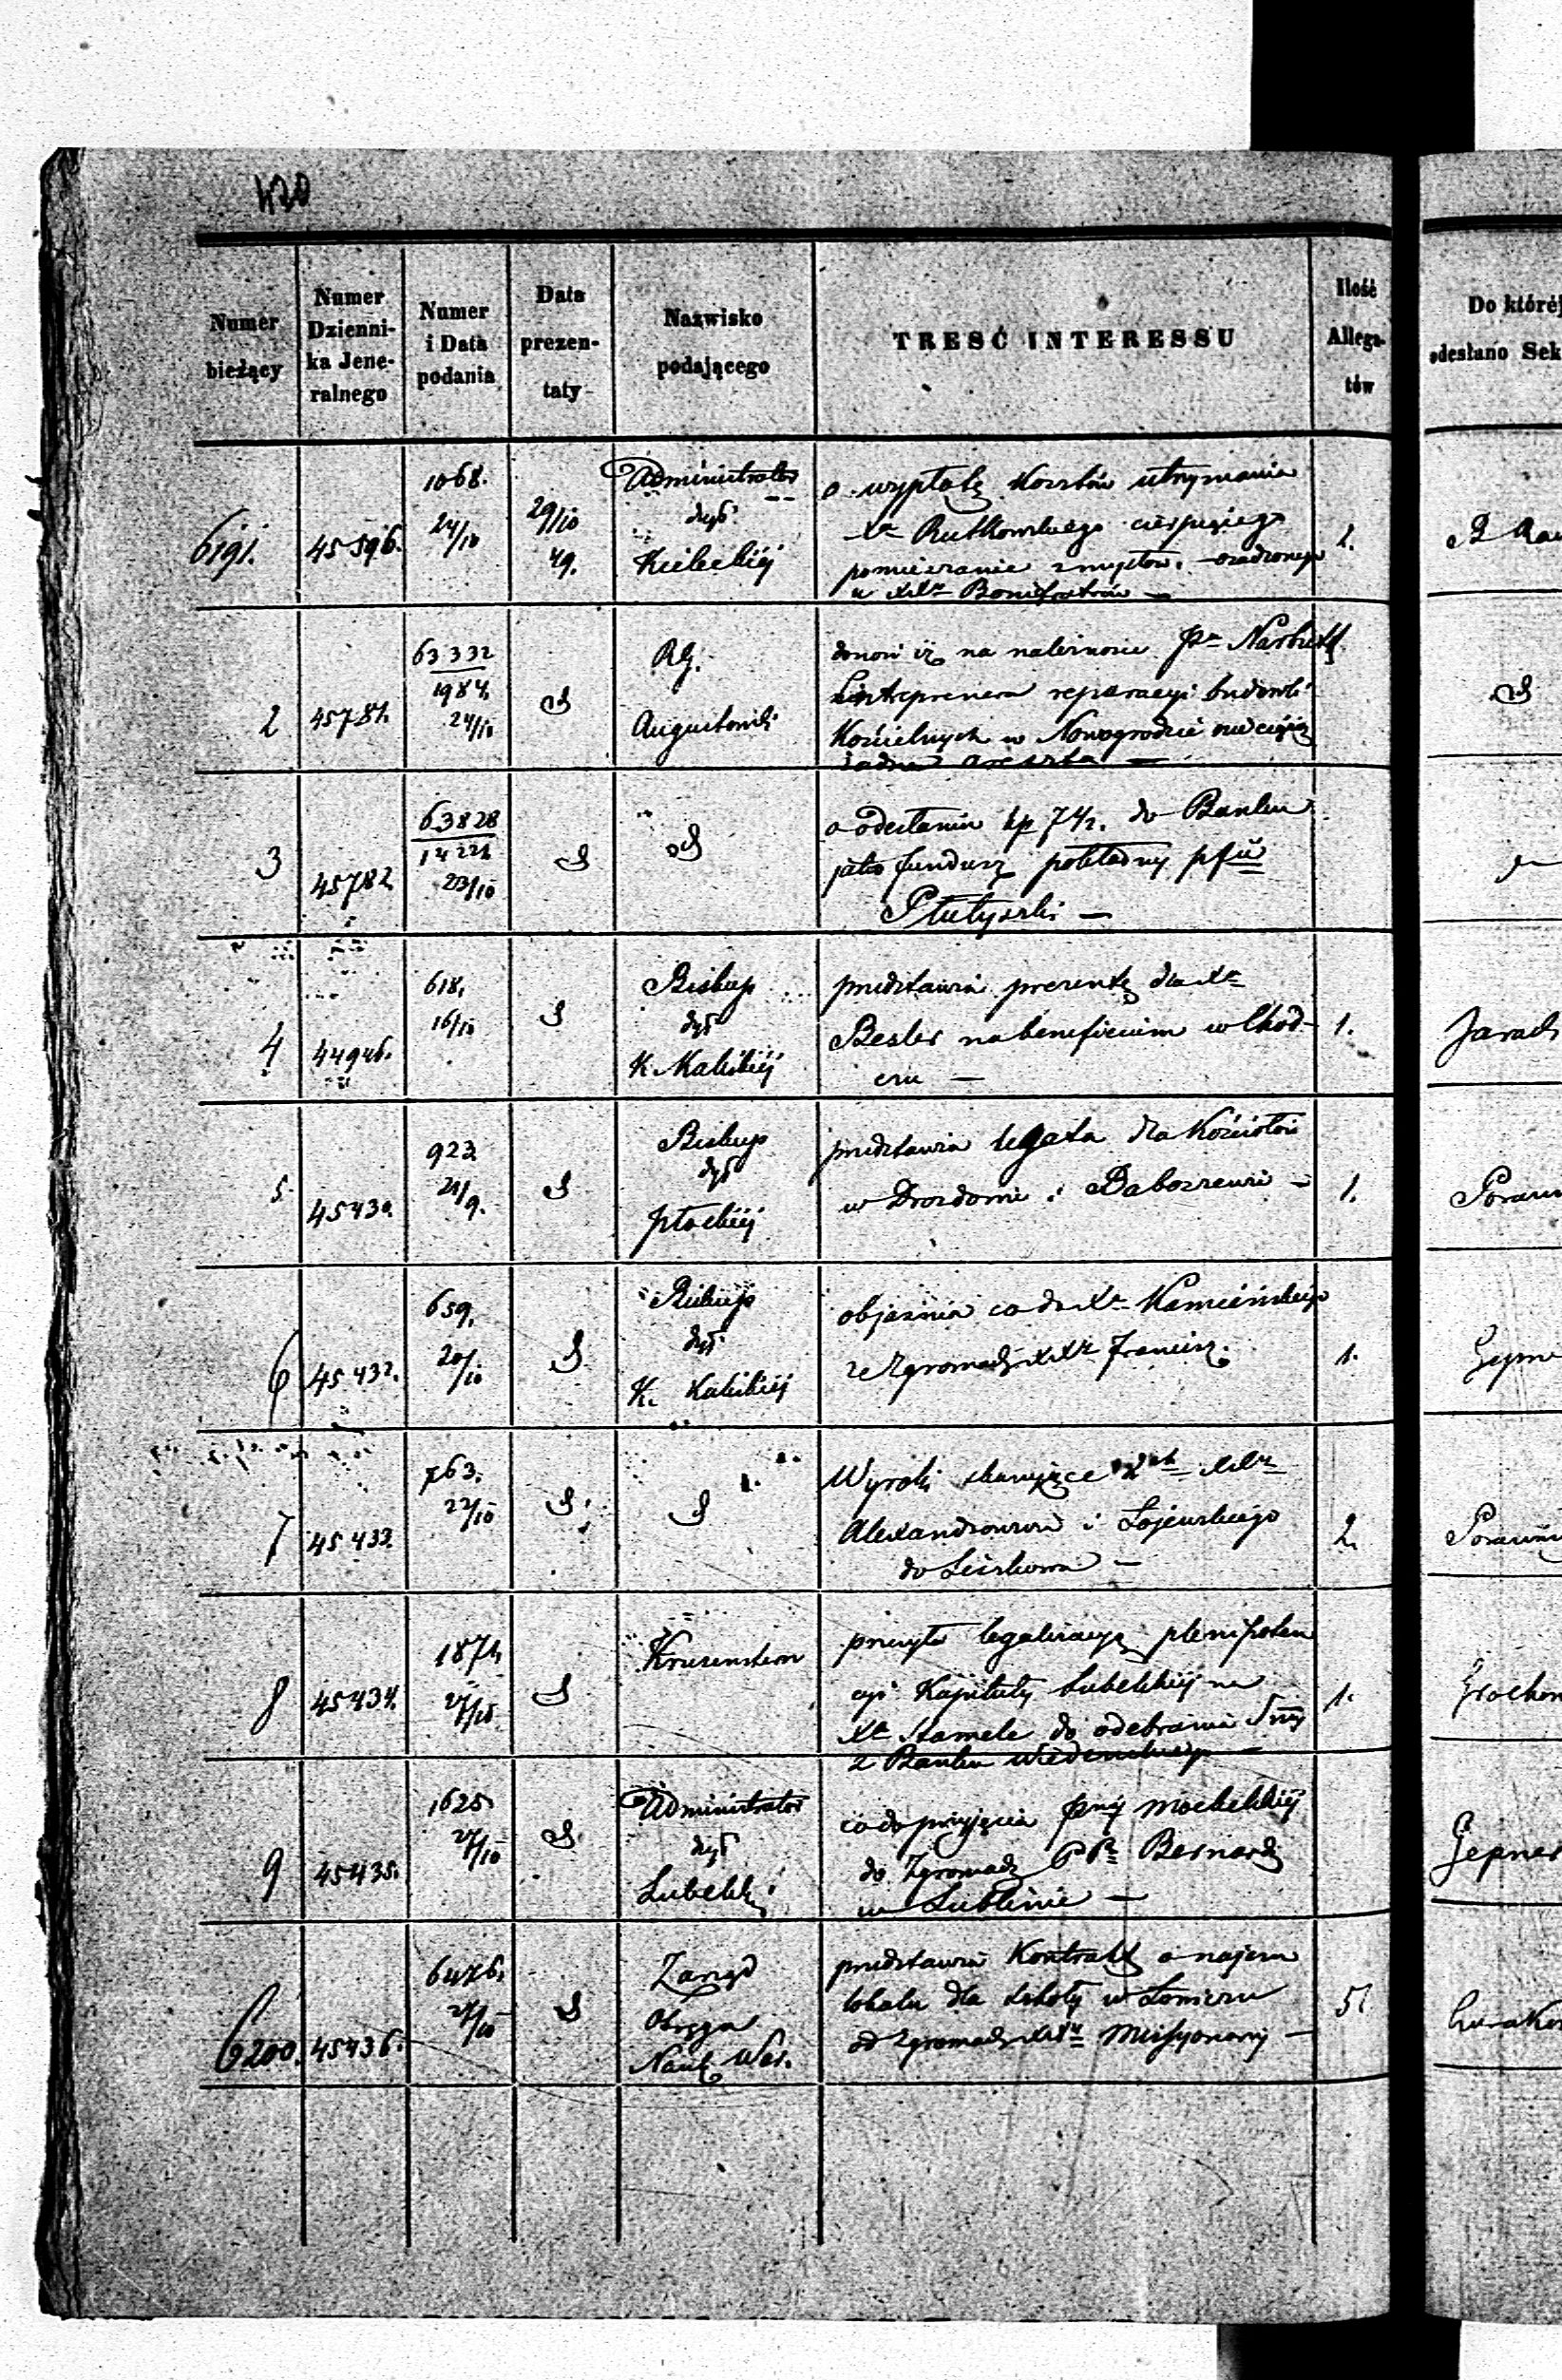 420
Numer bieżący
Numer Dzienni- ka Jene- ralnego
Numer i Data podania
Data prezen- taty
Nazwisko podającego
TRESĆ INTERESSU
Ilość Allega- tów
Do któréj
odesłano Sek
6191. 45596. 1068. 24/10 29/10 49. Administrator dyó Kieleckiéj
o wypłatę Kosztów utrzymania
Xa Rutkowskiego cierpiącego
pomieszanie zmysłów. osadzonego
u XXr Bonifratrów —
2 45781. 63332 1984. 24/10 RG. Augustowski
donosi iż na należności Pa Narbutt
Entreprenera reparacyi budowli
Kościelnych w Nowogrodzie nie ciąży
żaden areszt —
3 45782 63828 23/10
o odesłaniu do Banku
jako fundusz pokładny
4 44946. 618. 16/10 Biskup dyó K. Kaliskiéj
przedstawia prezentę dla Xa
Besler na beneficium w Chod-
czu — 1.
5 45430. 923. 21/9. Biskup dyó Płockiéj
przedstawia legata dla Kościołów
w Drozdowie i Baboszewie — 1. 
6 45432. 659. 20/10 Biskup dyó K. Kaliskiéj
objaśnia co do Xa Kamieńskiego
ze Zgromadz. XXr Francisz. 1.
7 45433. 763. 22/10
Wyroki skazujące XXr
Alexandrowicza i Łojewskiego
do Liszkowa — 2
8 45434. 1874. 27/10 Kruzenstern
przesyła legalizacyą plenipoten
cyi Kapituły Lubelskiéj na
Xa Hamele do odebrania Smy
z Banku Wiedeńskiego — 1.
9 45435. 1625 27/10 Administrator dyó Lubelsk
co do przyjęcia Pny
do Zgromadz PPn Bernardy
w Lublinie —
Gepner
6200. 45436. 6476. 27/10 Zarząd Okręgu Nauk War.
przedstawia Kontrakt o najem
lokalu dla szkoły w Łomiczu
od Zgromadz. XXr Missyonarzy — 5